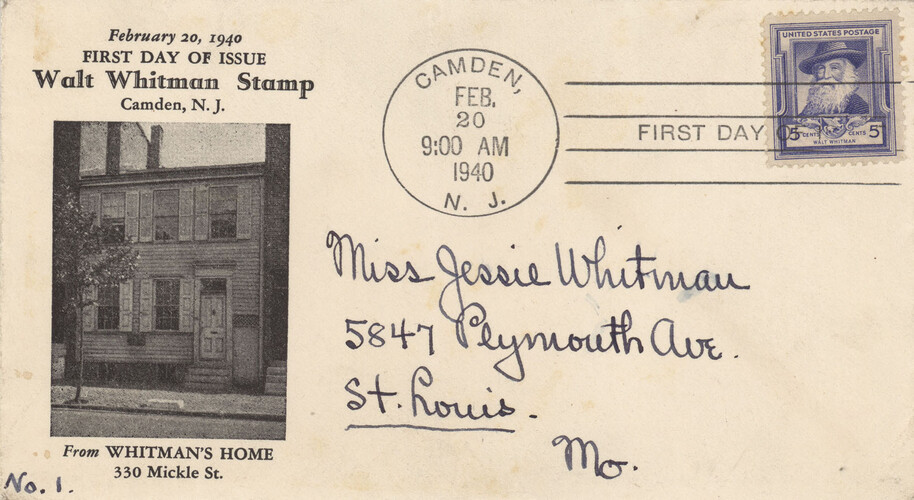 February 20, 1940
FIRST DAY OF ISSUE
Walt Whitman Stamp
Camden, N. J.
From WHITMAN'S HOME
330 Mickle St.
No. 1.
CAMDEN,
FEB.
20
9:00 AM
1940
N. J.
FIRST DAY O
UNITED STATES POSTAGE
5 CENTS CENTS 5
WALT WHITMAN
Miss Jessie Whitman
5847 Plymouth Ave.
St. Louis.
Mo.